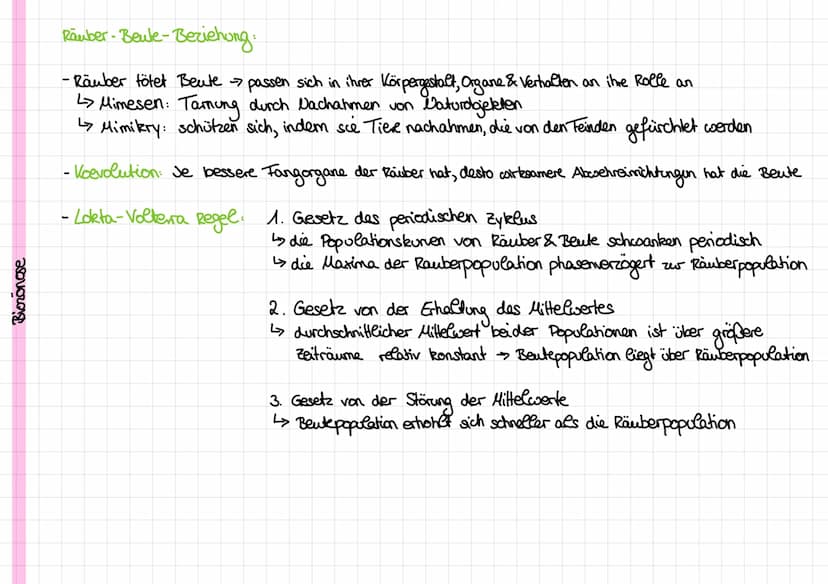 Räuber-Beute-Beziehung:
- Räuber tötet Beute → passen sich in ihrer Körpergestalt, Organe & Verhalten an ihre Rolle an
↳ Mimesen: Tarnung durch Nachahmen von Naturobjekten
↳ Mimikry: schützen sich, indem sie Tiere nachahmen, die von den Feinden gefürchtet werden
- Koevolution: Je bessere Fangorgane der Räuber hat, desto wirksamere Abwehreinrichtungen hat die Beute
- Lokta-Volterra Regel: 1. Gesetz das periodischen Zyklus
↳ die Populationskurven von Räuber & Beute schwanken periodisch
↳ die Maxima der Räuberpopulation phasenverzögert zur Räuberpopulation
Biozönose
2. Gesetz von der Erhaltung das Mittelwertes
↳ durchschnittlicher Mittelwert beider Populationen ist über größere
Zeiträume relativ konstant → Beutepopulation liegt über Räuberpopulation
3. Gesetz von der Störung der Mittelwerte
↳ Beutepopulation erholt sich schneller als die Räuberpopulation